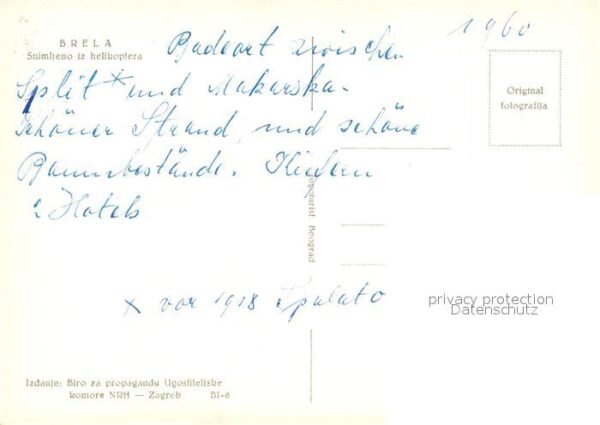 1960
BRELA
Snimljeno iz helikoptera
Badeort zwischen
Split x und Makarska.
Schöner Strand und schöne
Baumbestände. Kiefern
2 Hotels
Original
fotografija
Jugoturist Beograd
x vor 1918 Spalato
privacy protection
Datenschutz
Izdanje: Biro za propagandu Ugostiteljske
komore NRH — Zagreb BI-6